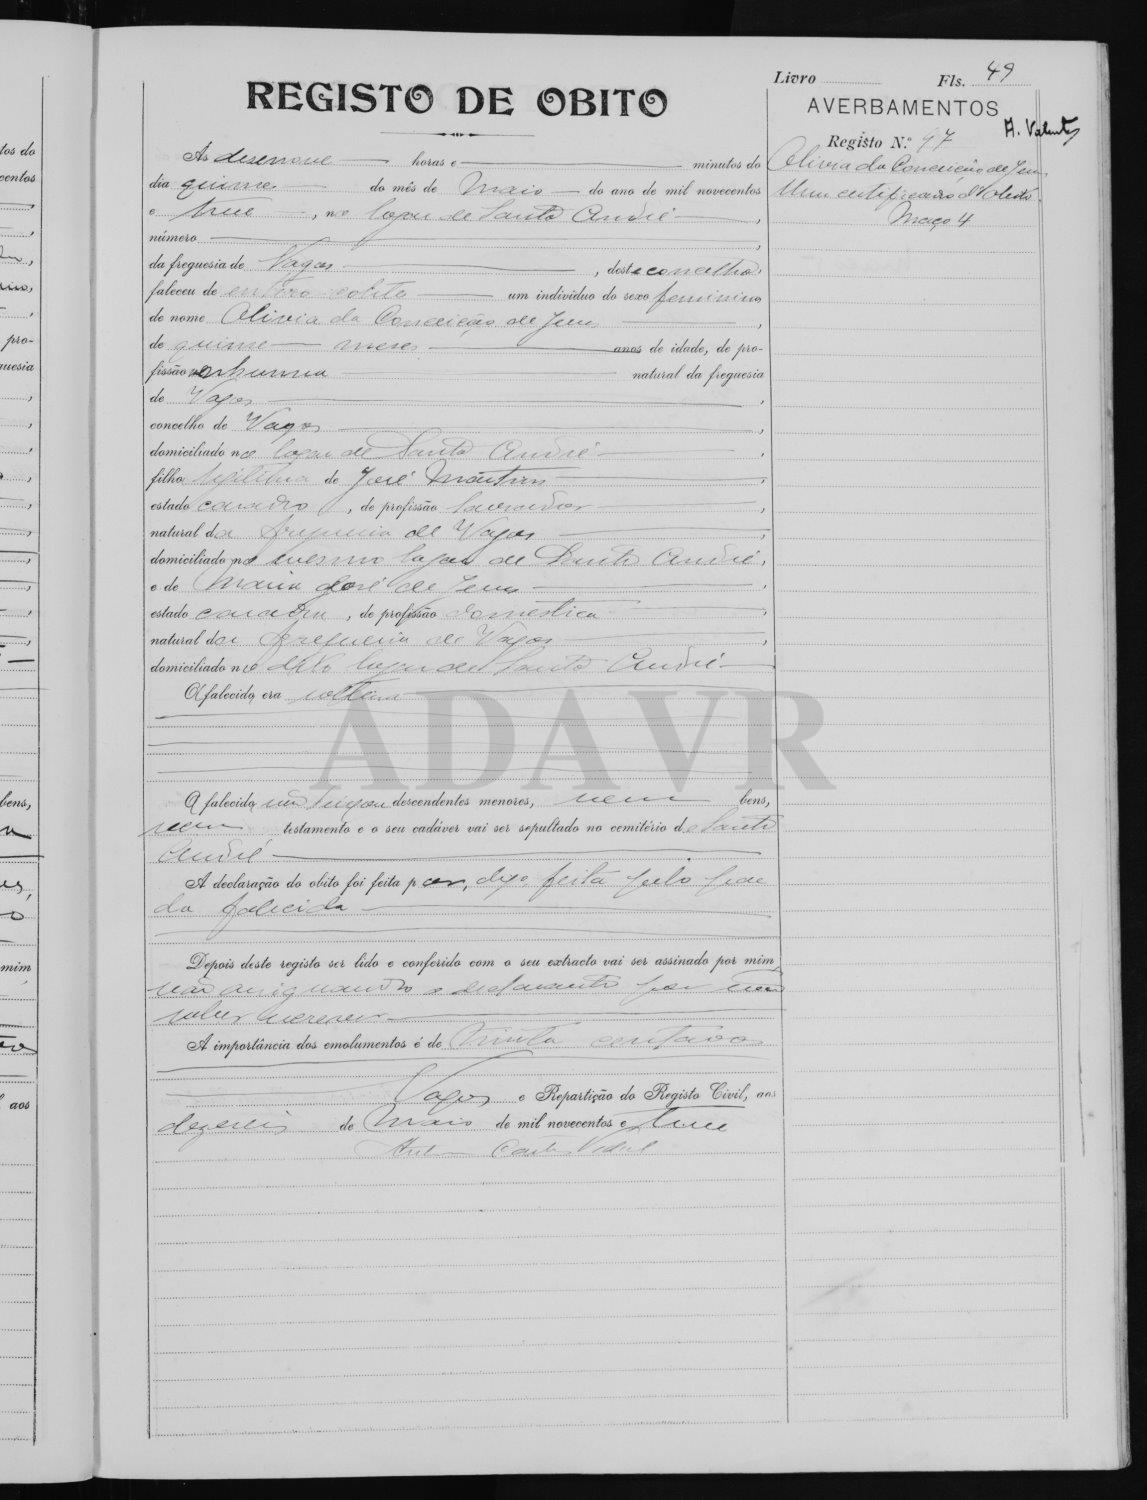 Livro Fls. 49
REGISTO DE OBITO
AVERBAMENTOS
Registo N.º 97
Olivia da Conceição de Jesus
Um certificado d'obito.
Maço 4
Ás desenove horas e minutos do
dia quinze do mês de Maio do ano de mil novecentos
e treze, no logar de Santo André,
número
da freguesia de Vagos, deste concelho,
faleceu de entero-colite um individuo do sexo feminino
de nome Olivia da Conceição de Jesus,
de quinze meses anos de idade, de pro-
fissão nenhuma natural da freguesia
de Vagos,
concelho de Vagos,
domiciliado no logar de Santo André,
filha legitima de José Martins,
estado casado, de profissão lavrador,
natural da freguesia de Vagos,
domiciliado no mesmo logar de Santo André,
e de Maria José de Jesus,
estado casada, de profissão domestica,
natural da freguesia de Vagos,
domiciliado no dito logar de Santo André
A falecida era solteira
ADAVR
A falecida não deixou descendentes menores, nem bens,
nem testamento e o seu cadáver vai ser sepultado no cemitério de Santo
André
A declaração do obito foi feita por, digo, feita pelo pae
da falecida
Depois deste registo ser lido e conferido com o seu extracto vai ser assinado por mim,
não assignando o declarante por não
saber escrever
A importância dos emolumentos é de trinta centavos
Vagos e Repartição do Registo Civil, aos
dezeseis de Maio de mil novecentos e treze